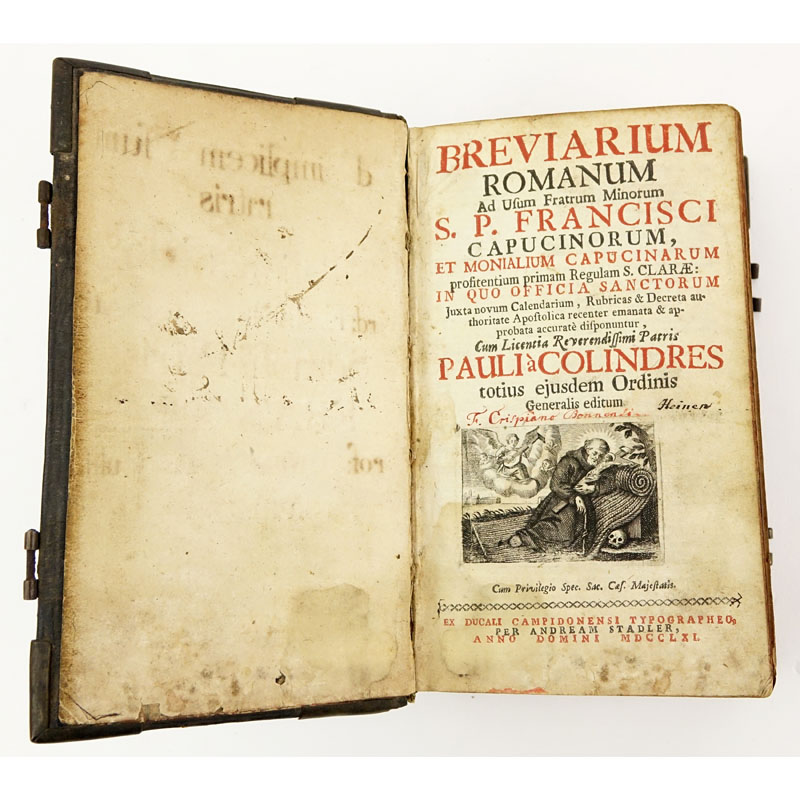 BREVIARIUM
ROMANUM
Ad Uſum Fratrum Minorum
S. P. FRANCISCI
CAPUCINORUM,
ET MONIALIUM CAPUCINARUM
profitentium primam Regulam S. CLARÆ:
IN QUO OFFICIA SANCTORUM
Juxta novum Calendarium, Rubricas & Decreta au-
thoritate Apoſtolica recenter emanata & ap-
probata accuratè diſponuntur,
Cum Licentia Reverendiſſimi Patris
PAULI à COLINDRES
totius ejusdem Ordinis
Generalis editum
Heinen.
Fr. Criſpiano Bonnenſi
Cum Privilegio Spec. Sac. Cæſ. Majeſtatis.
EX DUCALI CAMPIDONENSI TYPOGRAPHEO,
PER ANDREAM STADLER,
ANNO DOMINI MDCCLXI.